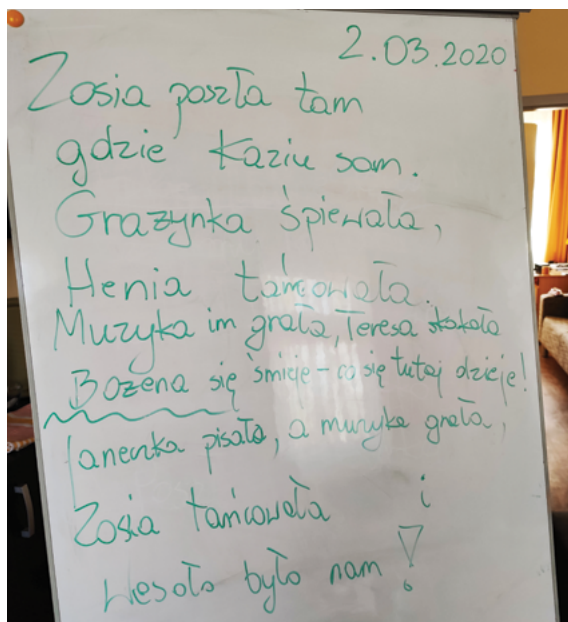 2.03.2020
Zosia poszła tam
gdzie Kaziu sam.
Grazynka śpiewała,
Henia tańcowała.
Muzyka im grała, Teresa skakała
Bozena się śmieje - co się tutaj dzieje!
Janeczka pisała, a muzyka grała,
Zosia tańcowała i
Wesoło było nam!